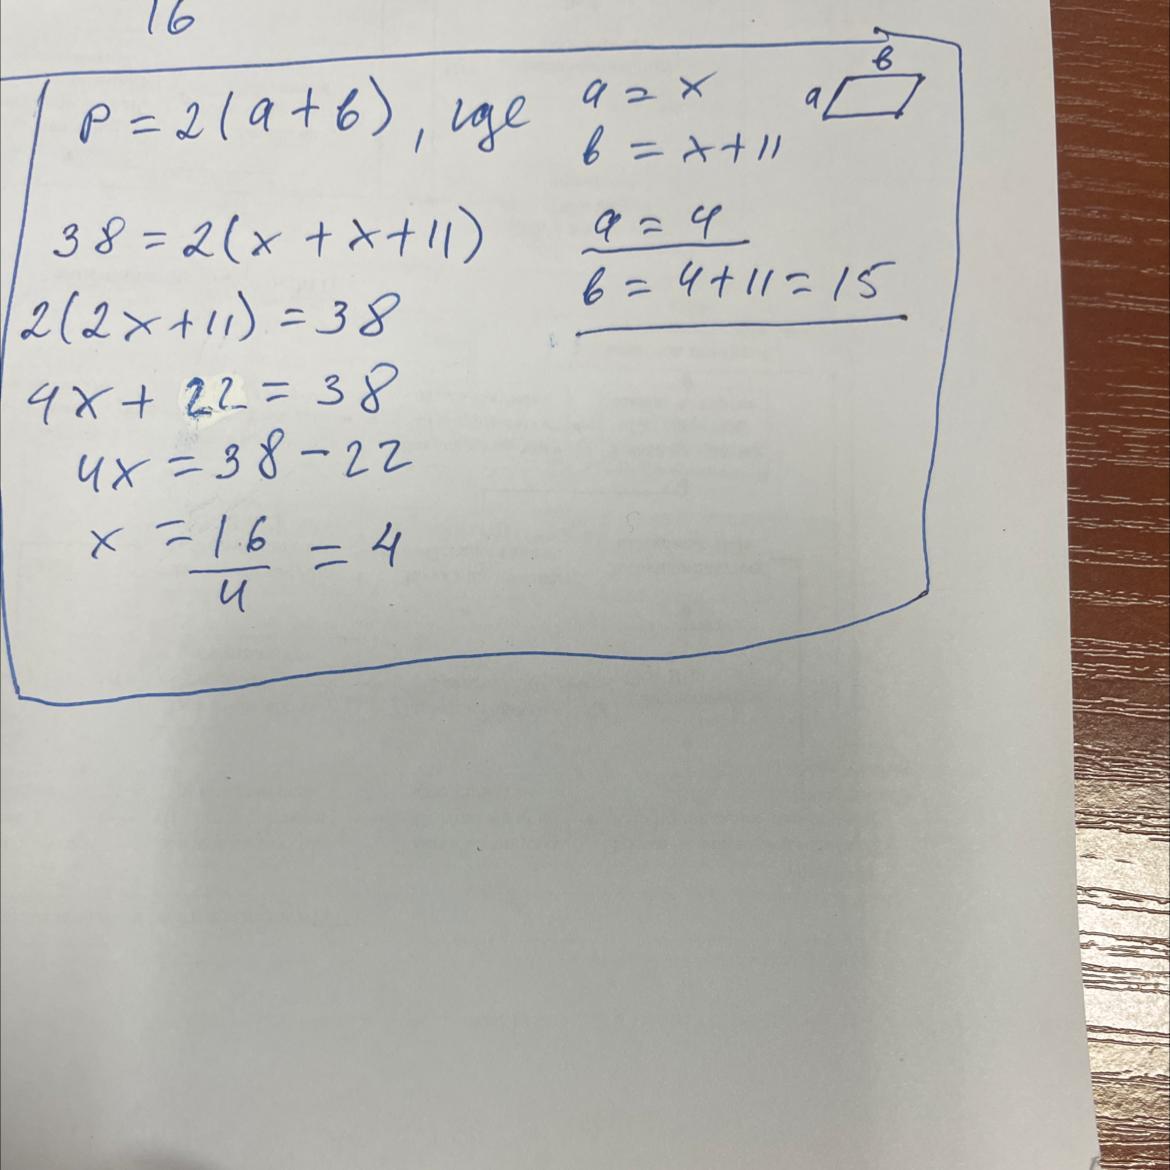 16
P = 2(a + b), где
a = x
b = x + 11
a
b
38 = 2(x + x + 11)
2(2x + 11) = 38
4x + 22 = 38
4x = 38 - 22
x = 16/4 = 4
a = 4
b = 4 + 11 = 15